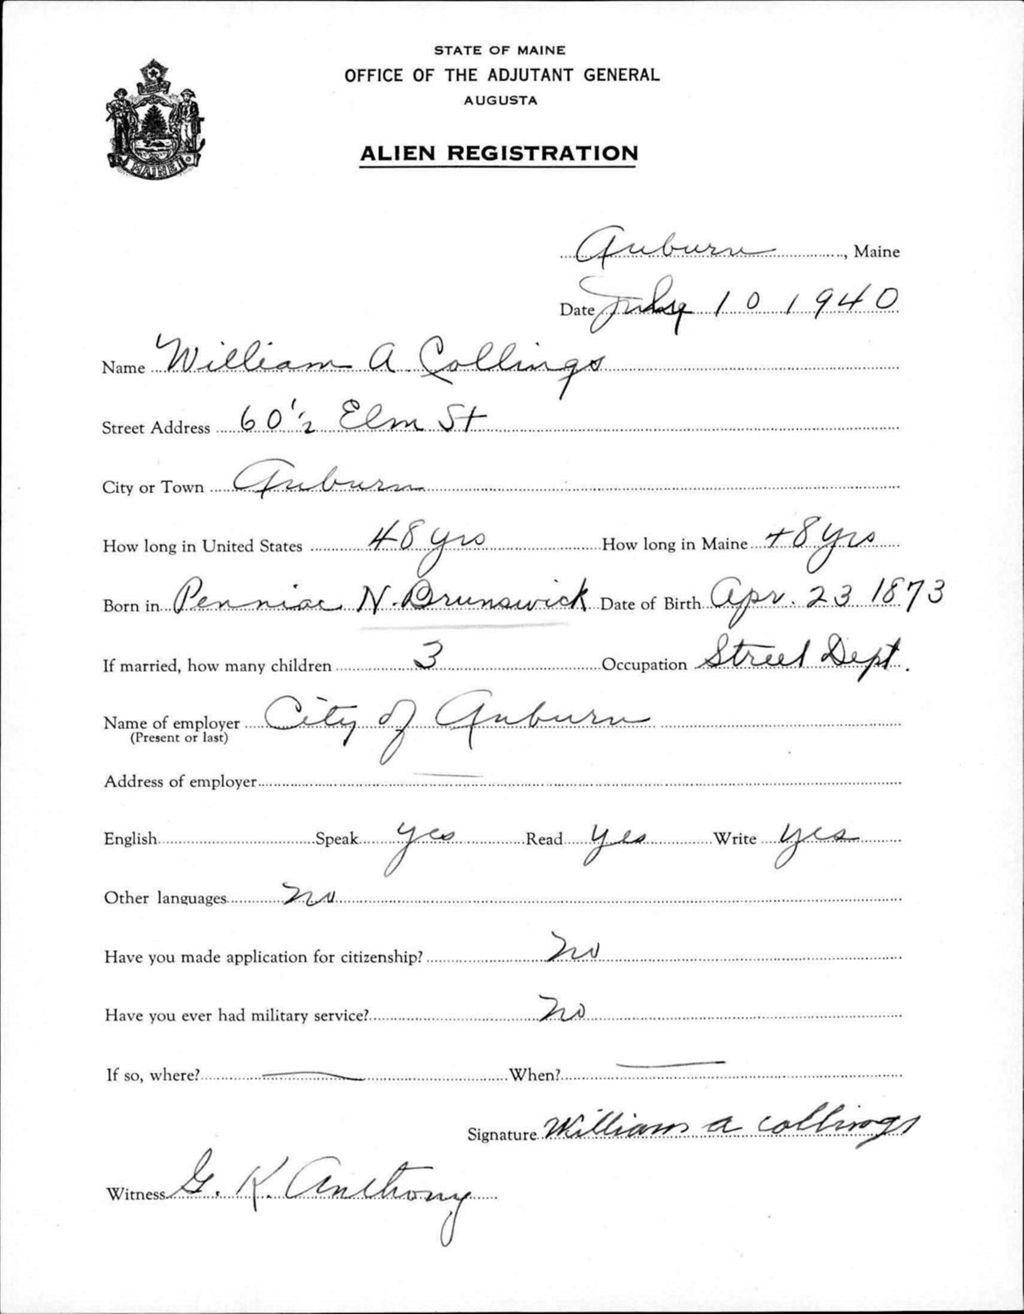 STATE OF MAINE
OFFICE OF THE ADJUTANT GENERAL
AUGUSTA
ALIEN REGISTRATION
MAINE
Auburn, Maine
Date July 10 1940
Name William A. Collings
Street Address 60 1/2 Elm St
City or Town Auburn
How long in United States 48 yrs How long in Maine 48 yrs
Born in Penniac N. Brunswick Date of Birth Apr. 23 1873
If married, how many children 3 Occupation Street Dept.
Name of employer City of Auburn
(Present or last)
Address of employer
English Speak yes Read yes Write yes
Other languages no
Have you made application for citizenship? no
Have you ever had military service? no
If so, where? — When? —
Signature William A Collings
Witness G. K. Anthony